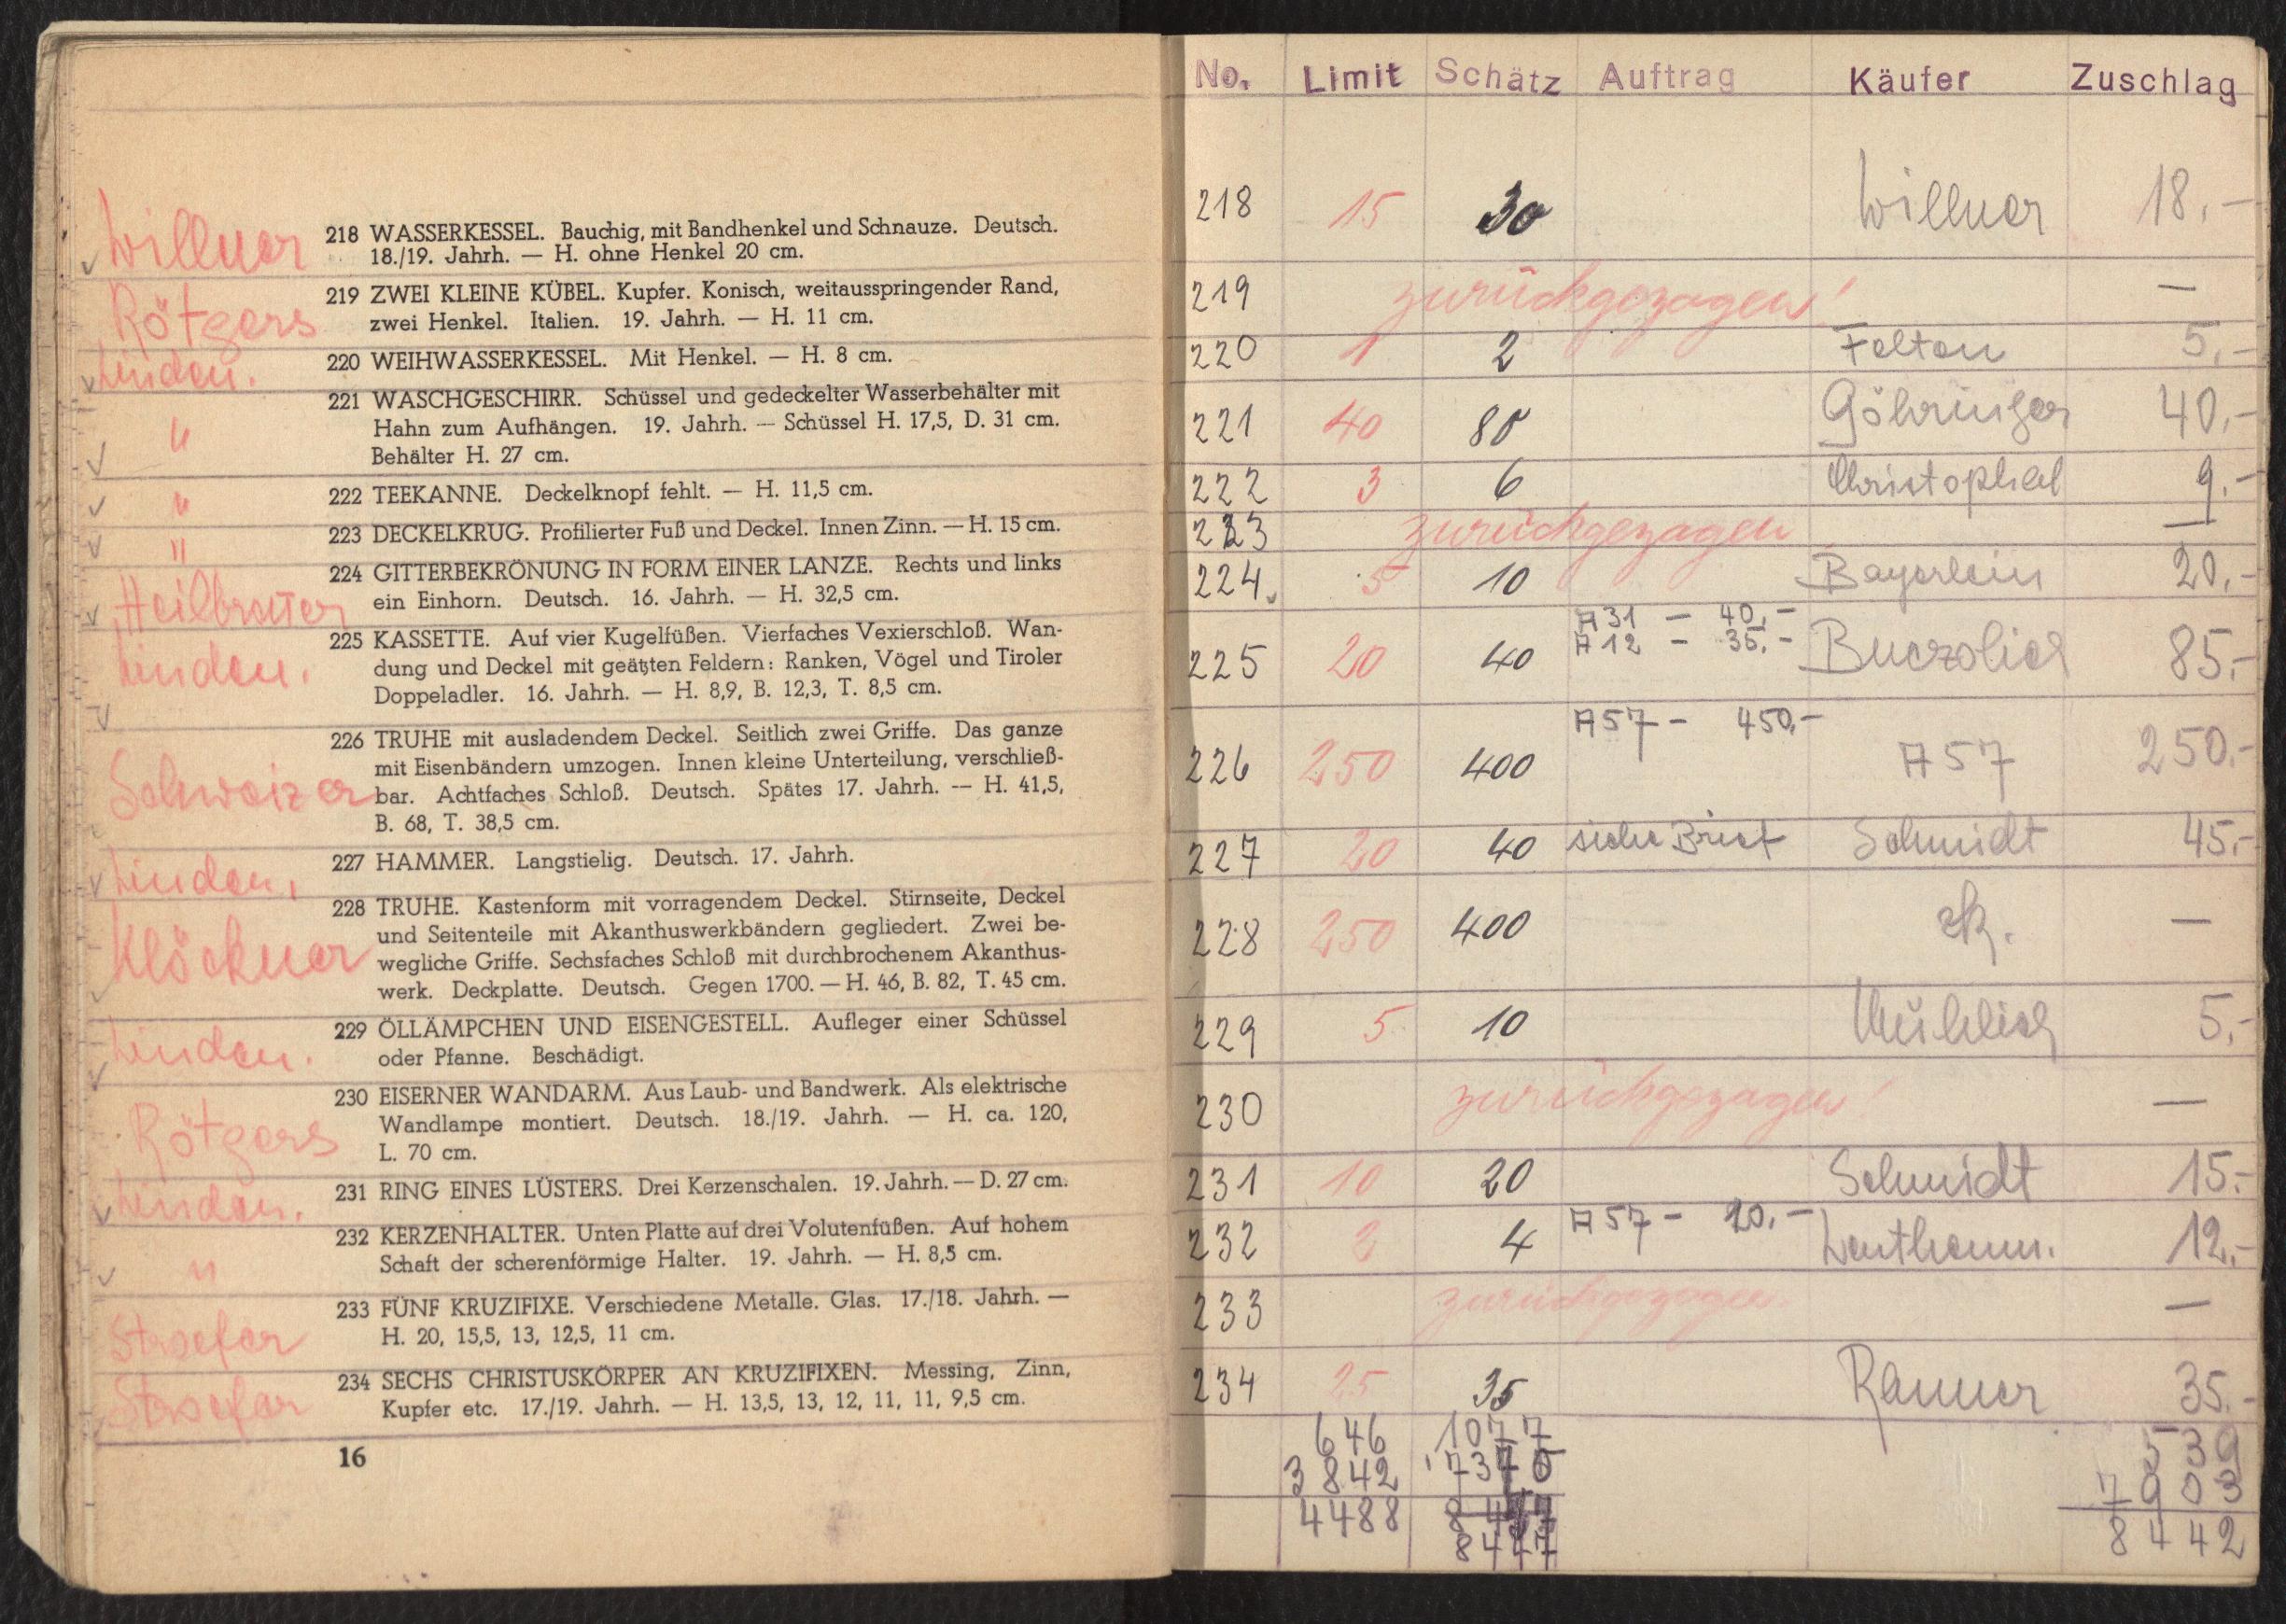 Willner
218 WASSERKESSEL. Bauchig, mit Bandhenkel und Schnauze. Deutsch.
18./19. Jahrh. — H. ohne Henkel 20 cm.
Rötgers
219 ZWEI KLEINE KÜBEL. Kupfer. Konisch, weitausspringender Rand,
zwei Henkel. Italien. 19. Jahrh. — H. 11 cm.
Linden.
220 WEIHWASSERKESSEL. Mit Henkel. — H. 8 cm.
"
221 WASCHGESCHIRR. Schüssel und gedeckelter Wasserbehälter mit
Hahn zum Aufhängen. 19. Jahrh. — Schüssel H. 17,5, D. 31 cm.
Behälter H. 27 cm.
"
222 TEEKANNE. Deckelknopf fehlt. — H. 11,5 cm.
"
223 DECKELKRUG. Profilierter Fuß und Deckel. Innen Zinn. — H. 15 cm.
224 GITTERBEKRÖNUNG IN FORM EINER LANZE. Rechts und links
ein Einhorn. Deutsch. 16. Jahrh. — H. 32,5 cm.
Linden.
225 KASSETTE. Auf vier Kugelfüßen. Vierfaches Vexierschloß. Wan-
dung und Deckel mit geätzten Feldern: Ranken, Vögel und Tiroler
Doppeladler. 16. Jahrh. — H. 8,9, B. 12,3, T. 8,5 cm.
Schweizer
226 TRUHE mit ausladendem Deckel. Seitlich zwei Griffe. Das ganze
mit Eisenbändern umzogen. Innen kleine Unterteilung, verschließ-
bar. Achtfaches Schloß. Deutsch. Spätes 17. Jahrh. — H. 41,5,
B. 68, T. 38,5 cm.
Linden.
227 HAMMER. Langstielig. Deutsch. 17. Jahrh.
Klöckner
228 TRUHE. Kastenform mit vorragendem Deckel. Stirnseite, Deckel
und Seitenteile mit Akanthuswerkbändern gegliedert. Zwei be-
wegliche Griffe. Sechsfaches Schloß mit durchbrochenem Akanthus-
werk. Deckplatte. Deutsch. Gegen 1700. — H. 46, B. 82, T. 45 cm.
Linden.
229 ÖLLÄMPCHEN UND EISENGESTELL. Aufleger einer Schüssel
oder Pfanne. Beschädigt.
Rötgers
230 EISERNER WANDARM. Aus Laub- und Bandwerk. Als elektrische
Wandlampe montiert. Deutsch. 18./19. Jahrh. — H. ca. 120,
L. 70 cm.
Linden.
231 RING EINES LÜSTERS. Drei Kerzenschalen. 19. Jahrh. — D. 27 cm.
"
232 KERZENHALTER. Unten Platte auf drei Volutenfüßen. Auf hohem
Schaft der scherenförmige Halter. 19. Jahrh. — H. 8,5 cm.
Stroefer
233 FÜNF KRUZIFIXE. Verschiedene Metalle. Glas. 17./18. Jahrh. —
H. 20, 15,5, 13, 12,5, 11 cm.
Stroefer
234 SECHS CHRISTUSKÖRPER AN KRUZIFIXEN. Messing, Zinn,
Kupfer etc. 17./19. Jahrh. — H. 13,5, 13, 12, 11, 11, 9,5 cm.
16
No. Limit Schätz Auftrag Käufer Zuschlag
218 15 30 Willner 18.-
219 zurückgezogen! —
220 1 2 Felten 5.-
221 40 80 Göhringer 40.-
222 3 6 Christophel 9.-
223 zurückgezogen —
224. 5 10 Bayerlein 20.-
A31 - 40.-
A12 - 35.-
225 20 40 85.-
A57 - 450.-
226 250 400 A57 250.-
227 20 40 siehe Brief Schmidt 45.-
228 250 400 —
229 5 10 5.-
230 zurückgezogen! —
231 10 20 Schmidt 15.-
A57 - 20.-
232 2 4 12.-
233 zurückgezogen —
234 25 35 Ranner 35.-
646 1077 539
3842 7903
4488 8442
8447